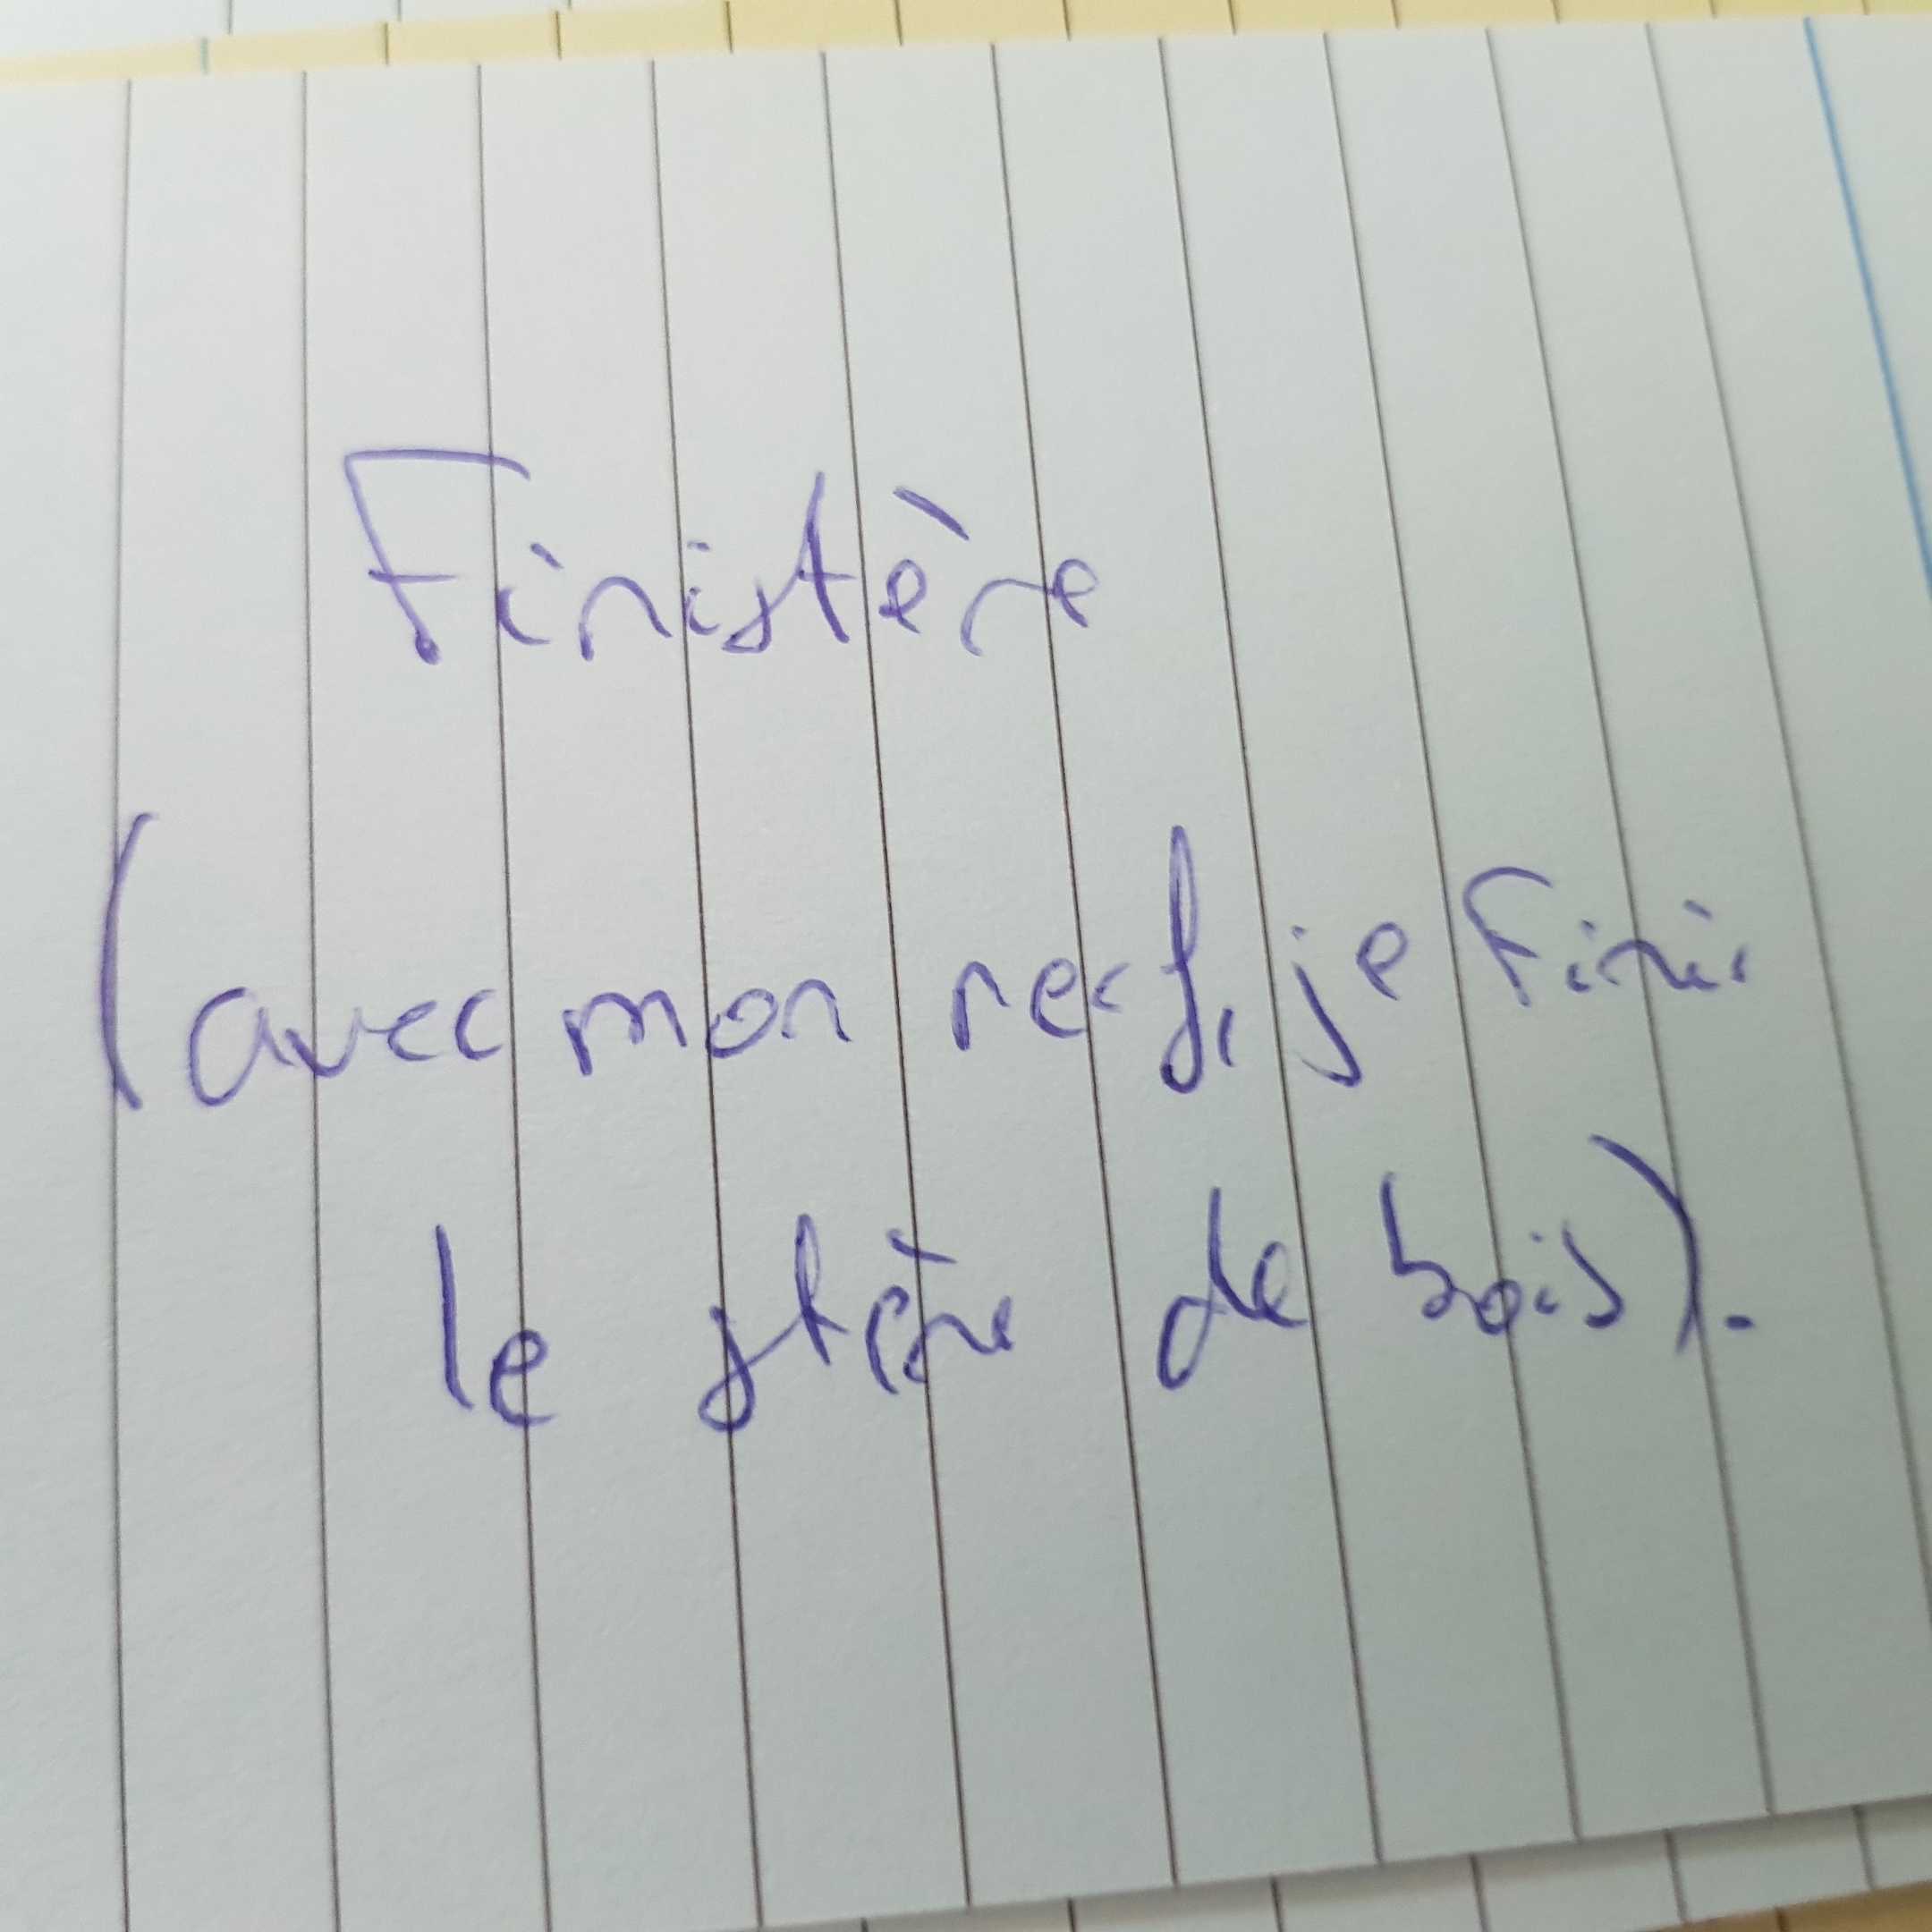 Finistère
(avec mon nerf, je finis
le stère de bois).